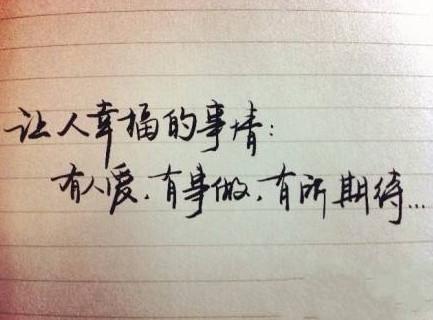 让人幸福的事情:
有人爱.有事做.有所期待...